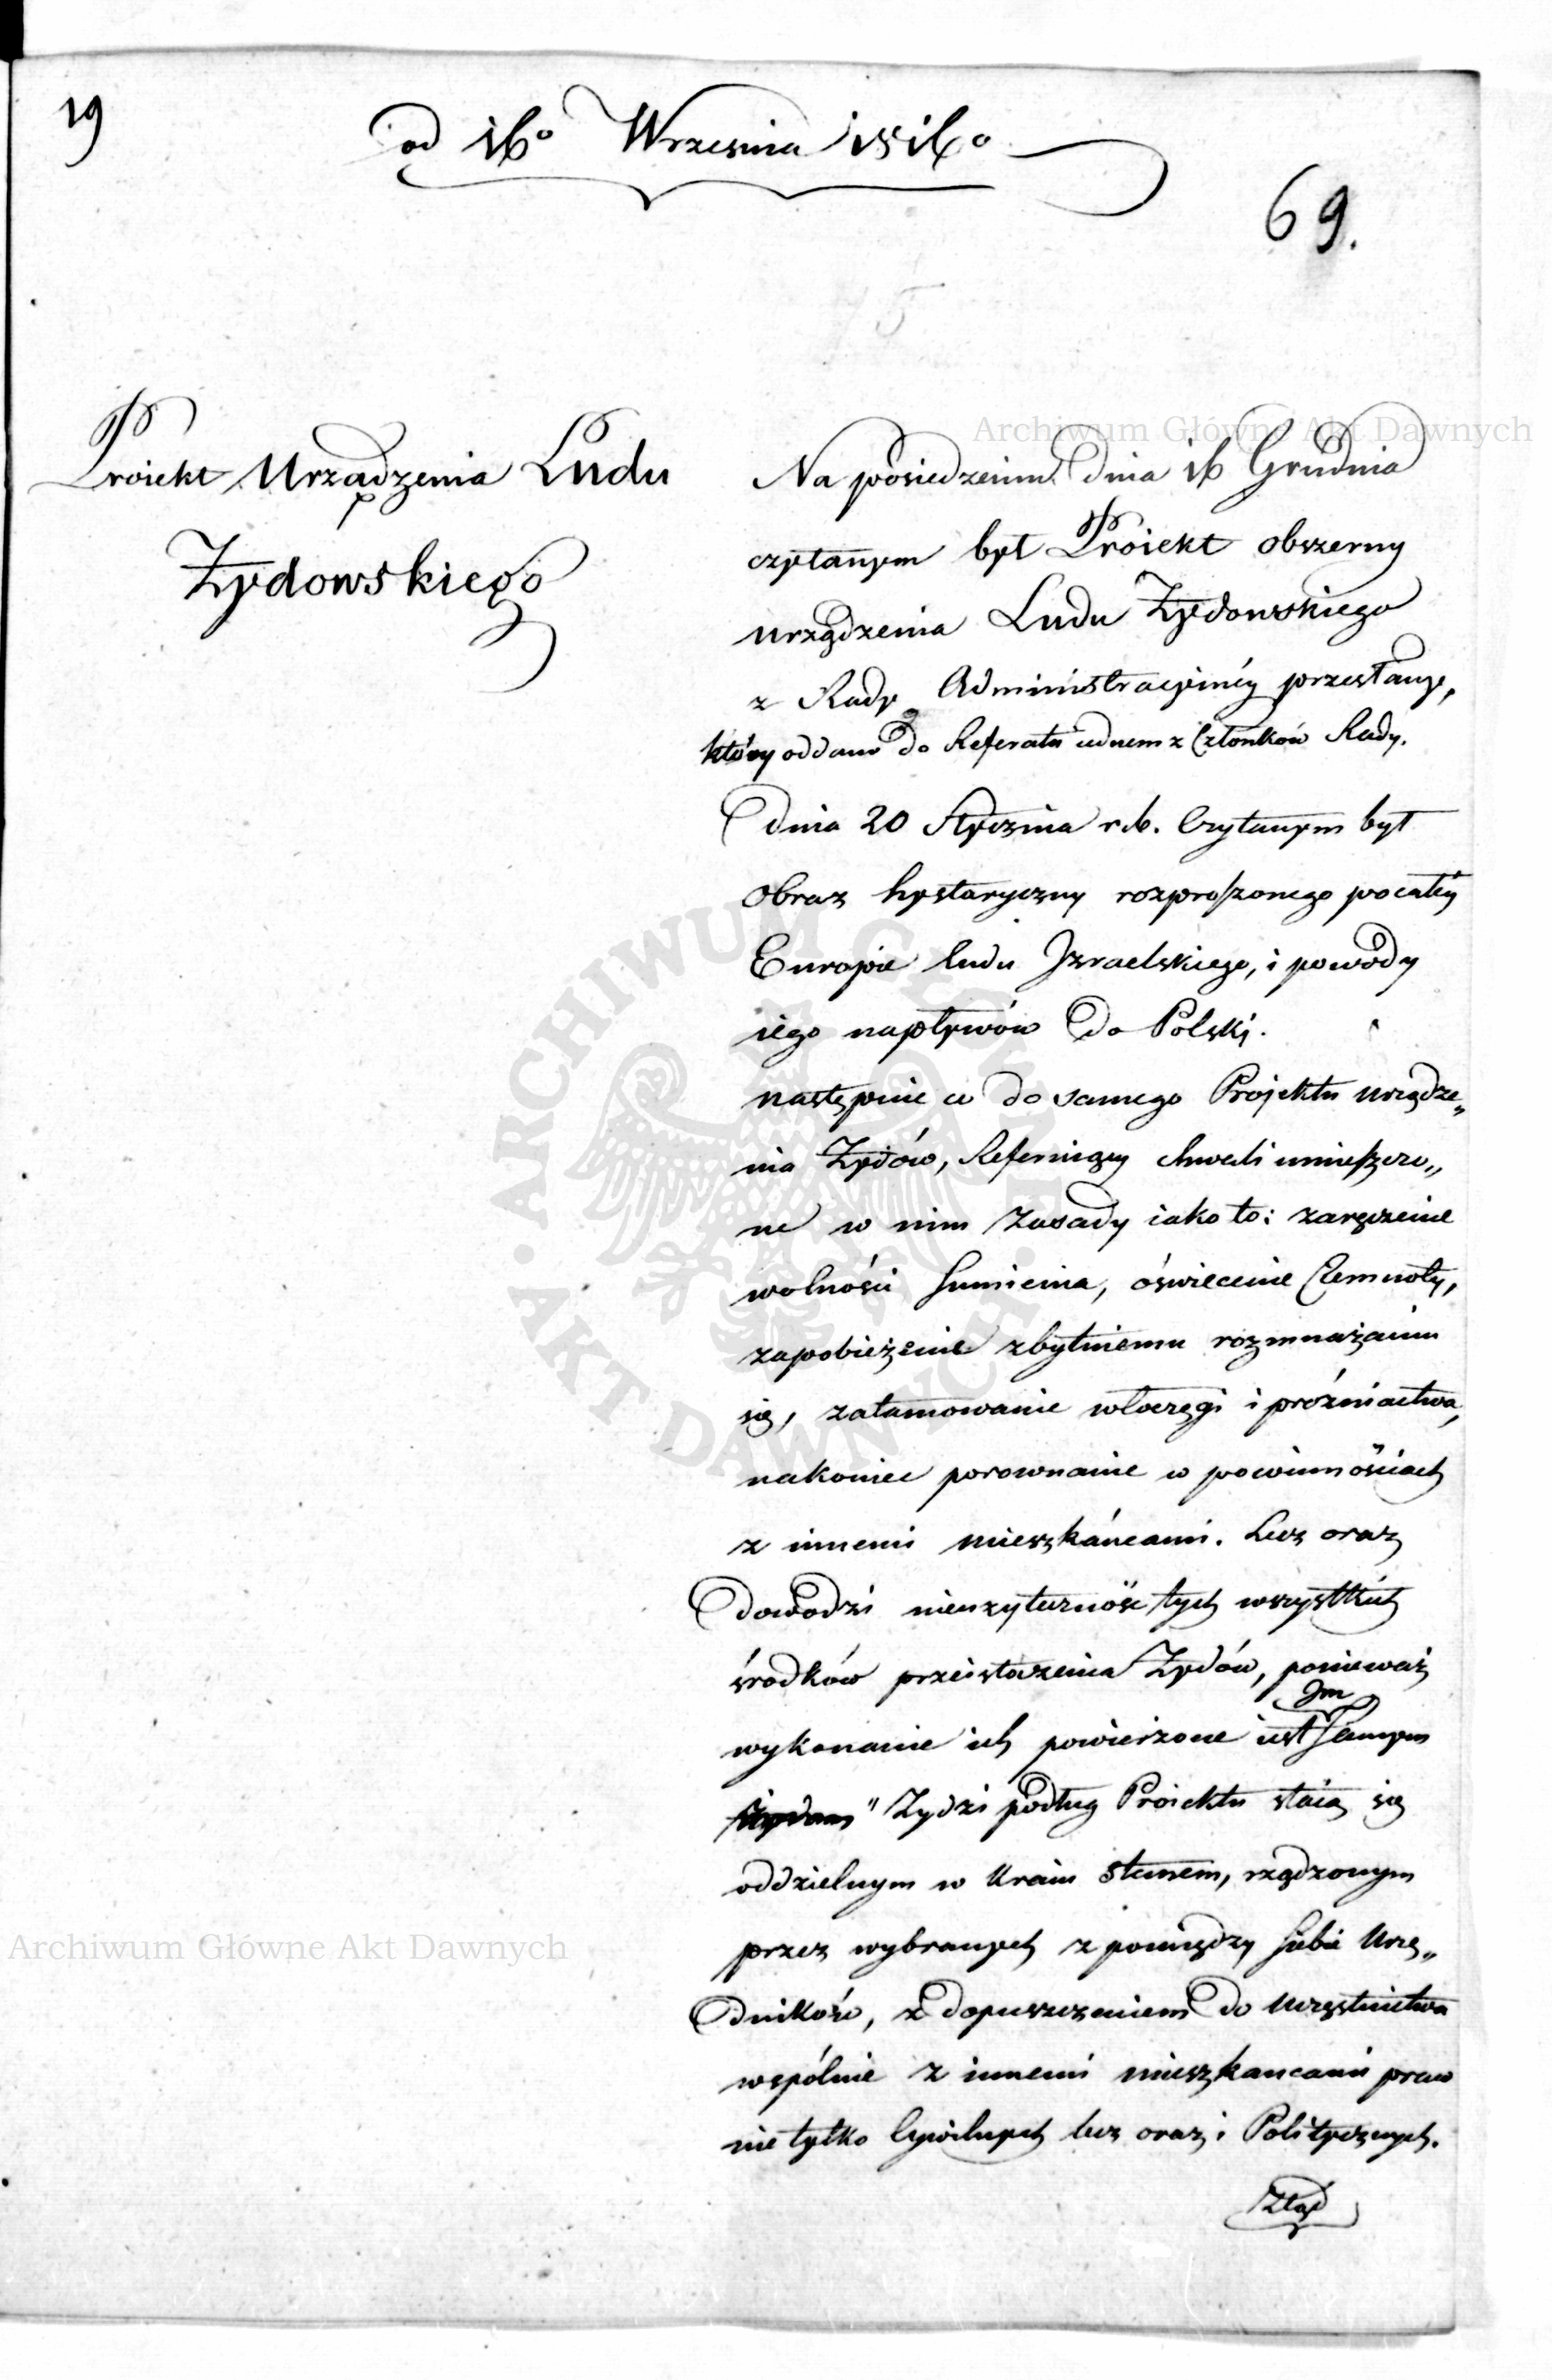 19
od 16º Wrzesnia 1816º
69.
Proiekt Urządzenia Ludu
Żydowskiego
Na posiedzeniu dnia 16 Grudnia
czytanym był Proiekt obszerny
urządzenia Ludu Żydowskiego
z Rady Administracyinéy przesłany,
który oddano do Referatu iednem z Członków Rady.
Dnia 20 Stycznia r.b. Czytanym był
obraz hystoryczny rozproszonego po całéy
Europie ludu Izraelskiego, i powody
iego napływów do Polski.
następnie co do samego Projektu urządze„
nia Żydów, Referuiący chwali umieszczo„
ne w nim zasady iako to: zaręczenie
wolności sumienia, óświecenie Ciemnoty,
zapobieżenie zbytniemu rozmnażaniu
się, zatamowanie włoczęgi i próżniactwa,
nakoniec porownanie w powinnościach
z innemi mieszkáncami. Lecz oraz
Dowodzi nieuzyteczność tych wszystkich
środków przeistoczenia Żydów, ponieważ
Im
wykonanie ich powierzone iest samym
Żydom" Zydzi podług Proiektu staią się
oddzielnym w Kraiu stanem, rządzonym
przez wybranych z pomiędzy siebie Urzę„
Dników, z dopuszczeniem do uczęstnictwa
wspólnie z innemi mieszkancami praw
nie tylko Cywilnych lecz oraz i Politycznych.
Ztąd
Archiwum Główne Akt Dawnych
Archiwum Główne Akt Dawnych
ARCHIWUM GŁÓWNE · AKT DAWNYCH ·